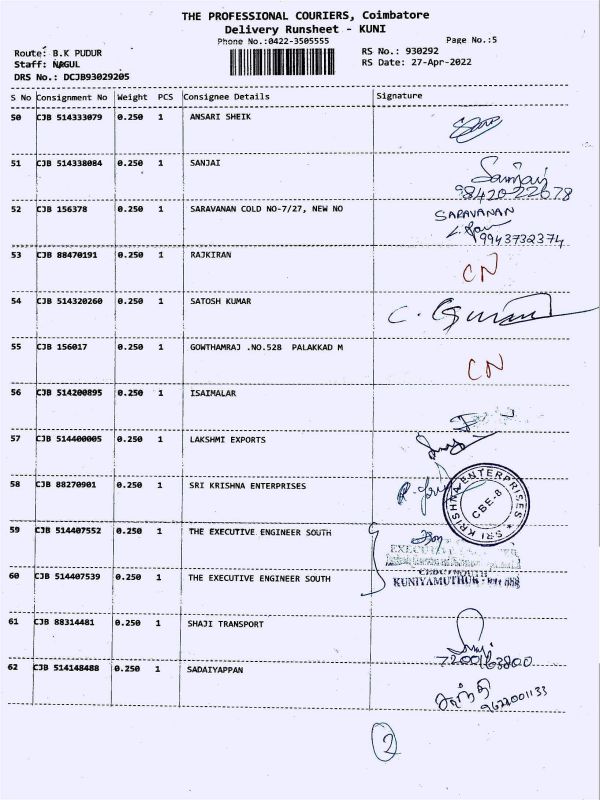 THE PROFESSIONAL COURIERS, Coimbatore
Delivery Runsheet - KUNI
Phone No.:0422-3505555
Page No.:5
Route: B.K PUDUR
RS No.: 930292
Staff: NAGUL
RS Date: 27-Apr-2022
DRS No.: DCJB93029205
S No Consignment No Weight PCS Consignee Details Signature
50 CJB 514333079 0.250 1 ANSARI SHEIK
51 CJB 514338084 0.250 1 SANJAI Sanjai
9842022678
52 CJB 156378 0.250 1 SARAVANAN COLD NO-7/27, NEW NO SARAVANAN
9943732374
53 CJB 88470191 0.250 1 RAJKIRAN CN
54 CJB 514320260 0.250 1 SATOSH KUMAR
55 CJB 156017 0.250 1 GOWTHAMRAJ .NO.528 PALAKKAD M CN
56 CJB 514200895 0.250 1 ISAIMALAR
57 CJB 514400005 0.250 1 LAKSHMI EXPORTS
58 CJB 88270901 0.250 1 SRI KRISHNA ENTERPRISES
SRI KRISHNA ENTERPRISES
CBE-8
59 CJB 514407552 0.250 1 THE EXECUTIVE ENGINEER SOUTH
60 CJB 514407539 0.250 1 THE EXECUTIVE ENGINEER SOUTH
KUNIYAMUTHUR
61 CJB 88314481 0.250 1 SHAJI TRANSPORT
7200163800
62 CJB 514148488 0.250 1 SADAIYAPPAN சாந்தி
9622001133
2